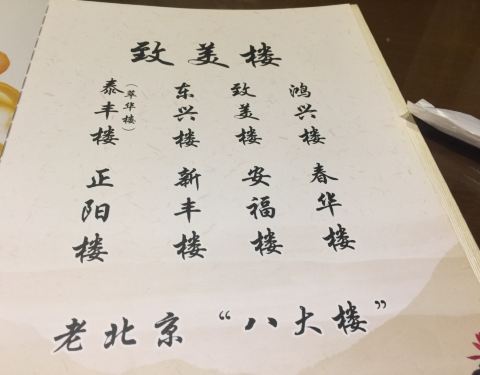 致美楼
鸿兴楼
春华楼
致美楼
安福楼
东兴楼
新丰楼
泰丰楼
(萃华楼)
正阳楼
老北京“八大楼”